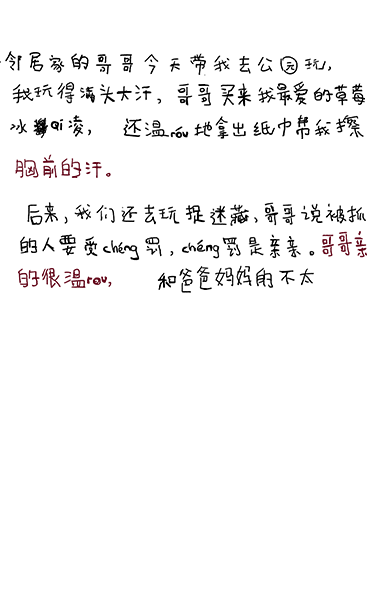 邻居家的哥哥今天带我去公园玩，
我玩得满头大汗，哥哥买来我最爱的草莓
冰qi凌，还温róu地拿出纸巾帮我擦
胸前的汗。
后来，我们还去玩捉迷藏，哥哥说被抓
的人要受chéng罚，chéng罚是亲亲。哥哥亲
的很温rou，和爸爸妈妈的不太